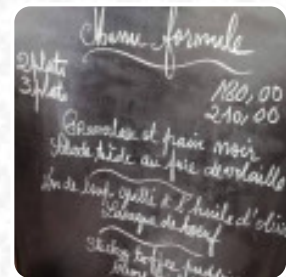 Menu formule
2 plats 180,00
3 plats 210,00
et pain noir
Salade tiède au foie de volaille
de loup grillé à l'huile d'oliv
Lasagne de boeuf
Sticky toffee pudding